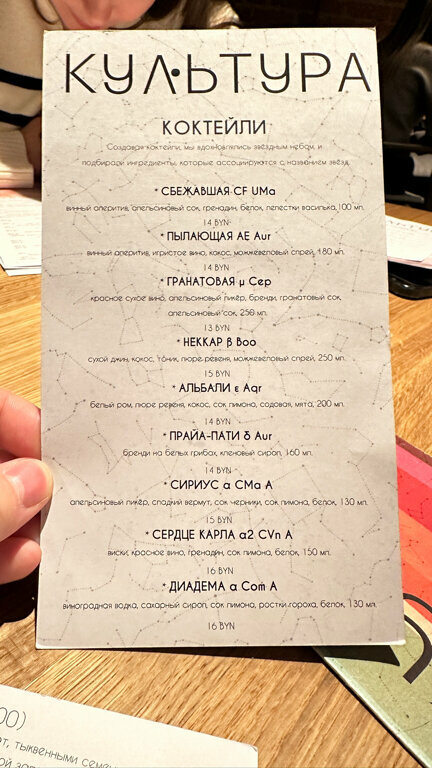 КУЛЬТУРА
КОКТЕЙЛИ
Создавая коктейли, мы вдохновлялись звёздным небом, и
подбирали ингредиенты, которые ассоциируются с названием звёзд.
* СБЕЖАВШАЯ CF UMa
винный аперитив, апельсиновый сок, гренадин, белок, лепестки василька, 100 мл.
14 BYN
* ПЫЛАЮЩАЯ AE Aur
винный аперитив, игристое вино, кокос, можжевеловый спрей, 180 мл.
14 BYN
* ГРАНАТОВАЯ μ Cep
красное сухое вино, апельсиновый ликёр, бренди, гранатовый сок,
апельсиновый сок, 250 мл.
13 BYN
* НЕККАР β Boo
сухой джин, кокос, тоник, пюре ревеня, можжевеловый спрей, 250 мл.
15 BYN
* АЛЬБАЛИ ε Aqr
белый ром, пюре ревеня, кокос, сок лимона, содовая, мята, 200 мл.
14 BYN
* ПРАЙА-ПАТИ δ Aur
бренди на белых грибах, кленовый сироп, 160 мл.
14 BYN
* СИРИУС α CMa A
апельсиновый ликёр, сладкий вермут, сок черники, сок лимона, белок, 130 мл.
15 BYN
* СЕРДЦЕ КАРЛА α2 CVn A
виски, красное вино, гренадин, сок лимона, белок, 150 мл.
16 BYN
* ДИАДЕМА α Com A
виноградная водка, сахарный сироп, сок лимона, ростки гороха, белок, 130 мл.
16 BYN
00)
тыквенными